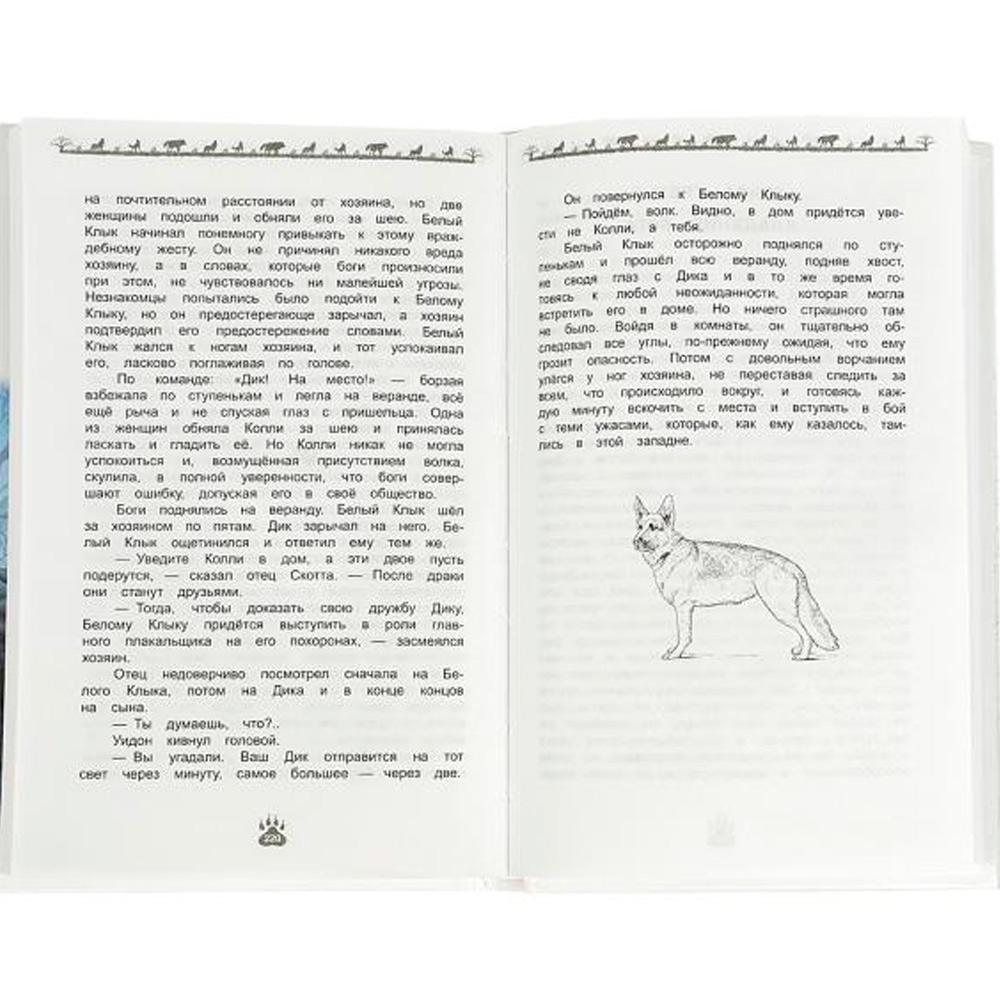 на почтительном расстоянии от хозяина, но две
женщины подошли и обняли его за шею. Белый
Клык начинал понемногу привыкать к этому враж-
дебному жесту. Он не причинял никакого вреда
хозяину, а в словах, которые боги произносили
при этом, не чувствовалось ни малейшей угрозы.
Незнакомцы попытались было подойти к Белому
Клыку, но он предостерегающе зарычал, а хозяин
подтвердил его предостережение словами. Белый
Клык жался к ногам хозяина, и тот успокаивал
его, ласково поглаживая по голове.
По команде: «Дик! На место!» — борзая
взбежала по ступенькам и легла на веранде, всё
ещё рыча и не спуская глаз с пришельца. Одна
из женщин обняла Колли за шею и принялась
ласкать и гладить её. Но Колли никак не могла
успокоиться и, возмущённая присутствием волка,
скулила, в полной уверенности, что боги совер-
шают ошибку, допуская его в своё общество.
Боги поднялись на веранду. Белый Клык шёл
за хозяином по пятам. Дик зарычал на него. Бе-
лый Клык ощетинился и ответил ему тем же.
— Уведите Колли в дом, а эти двое пусть
подерутся, — сказал отец Скотта. — После драки
они станут друзьями.
— Тогда, чтобы доказать свою дружбу Дику,
Белому Клыку придётся выступить в роли глав-
ного плакальщика на его похоронах, — засмеялся
хозяин.
Отец недоверчиво посмотрел сначала на Бе-
лого Клыка, потом на Дика и в конце концов
на сына.
— Ты думаешь, что?..
Уидон кивнул головой.
— Вы угадали. Ваш Дик отправится на тот
свет через минуту, самое большее — через две.
220
Он повернулся к Белому Клыку.
— Пойдём, волк. Видно, в дом придётся уве-
сти не Колли, а тебя.
Белый Клык осторожно поднялся по сту-
пенькам и прошёл всю веранду, подняв хвост,
не сводя глаз с Дика и в то же время го-
товясь к любой неожиданности, которая могла
встретить его в доме. Но ничего страшного там
не было. Войдя в комнаты, он тщательно об-
следовал все углы, по-прежнему ожидая, что ему
грозит опасность. Потом с довольным ворчанием
улёгся у ног хозяина, не переставая следить за
всем, что происходило вокруг, и готовясь каж-
дую минуту вскочить с места и вступить в бой
с теми ужасами, которые, как ему казалось, таи-
лись в этой западне.